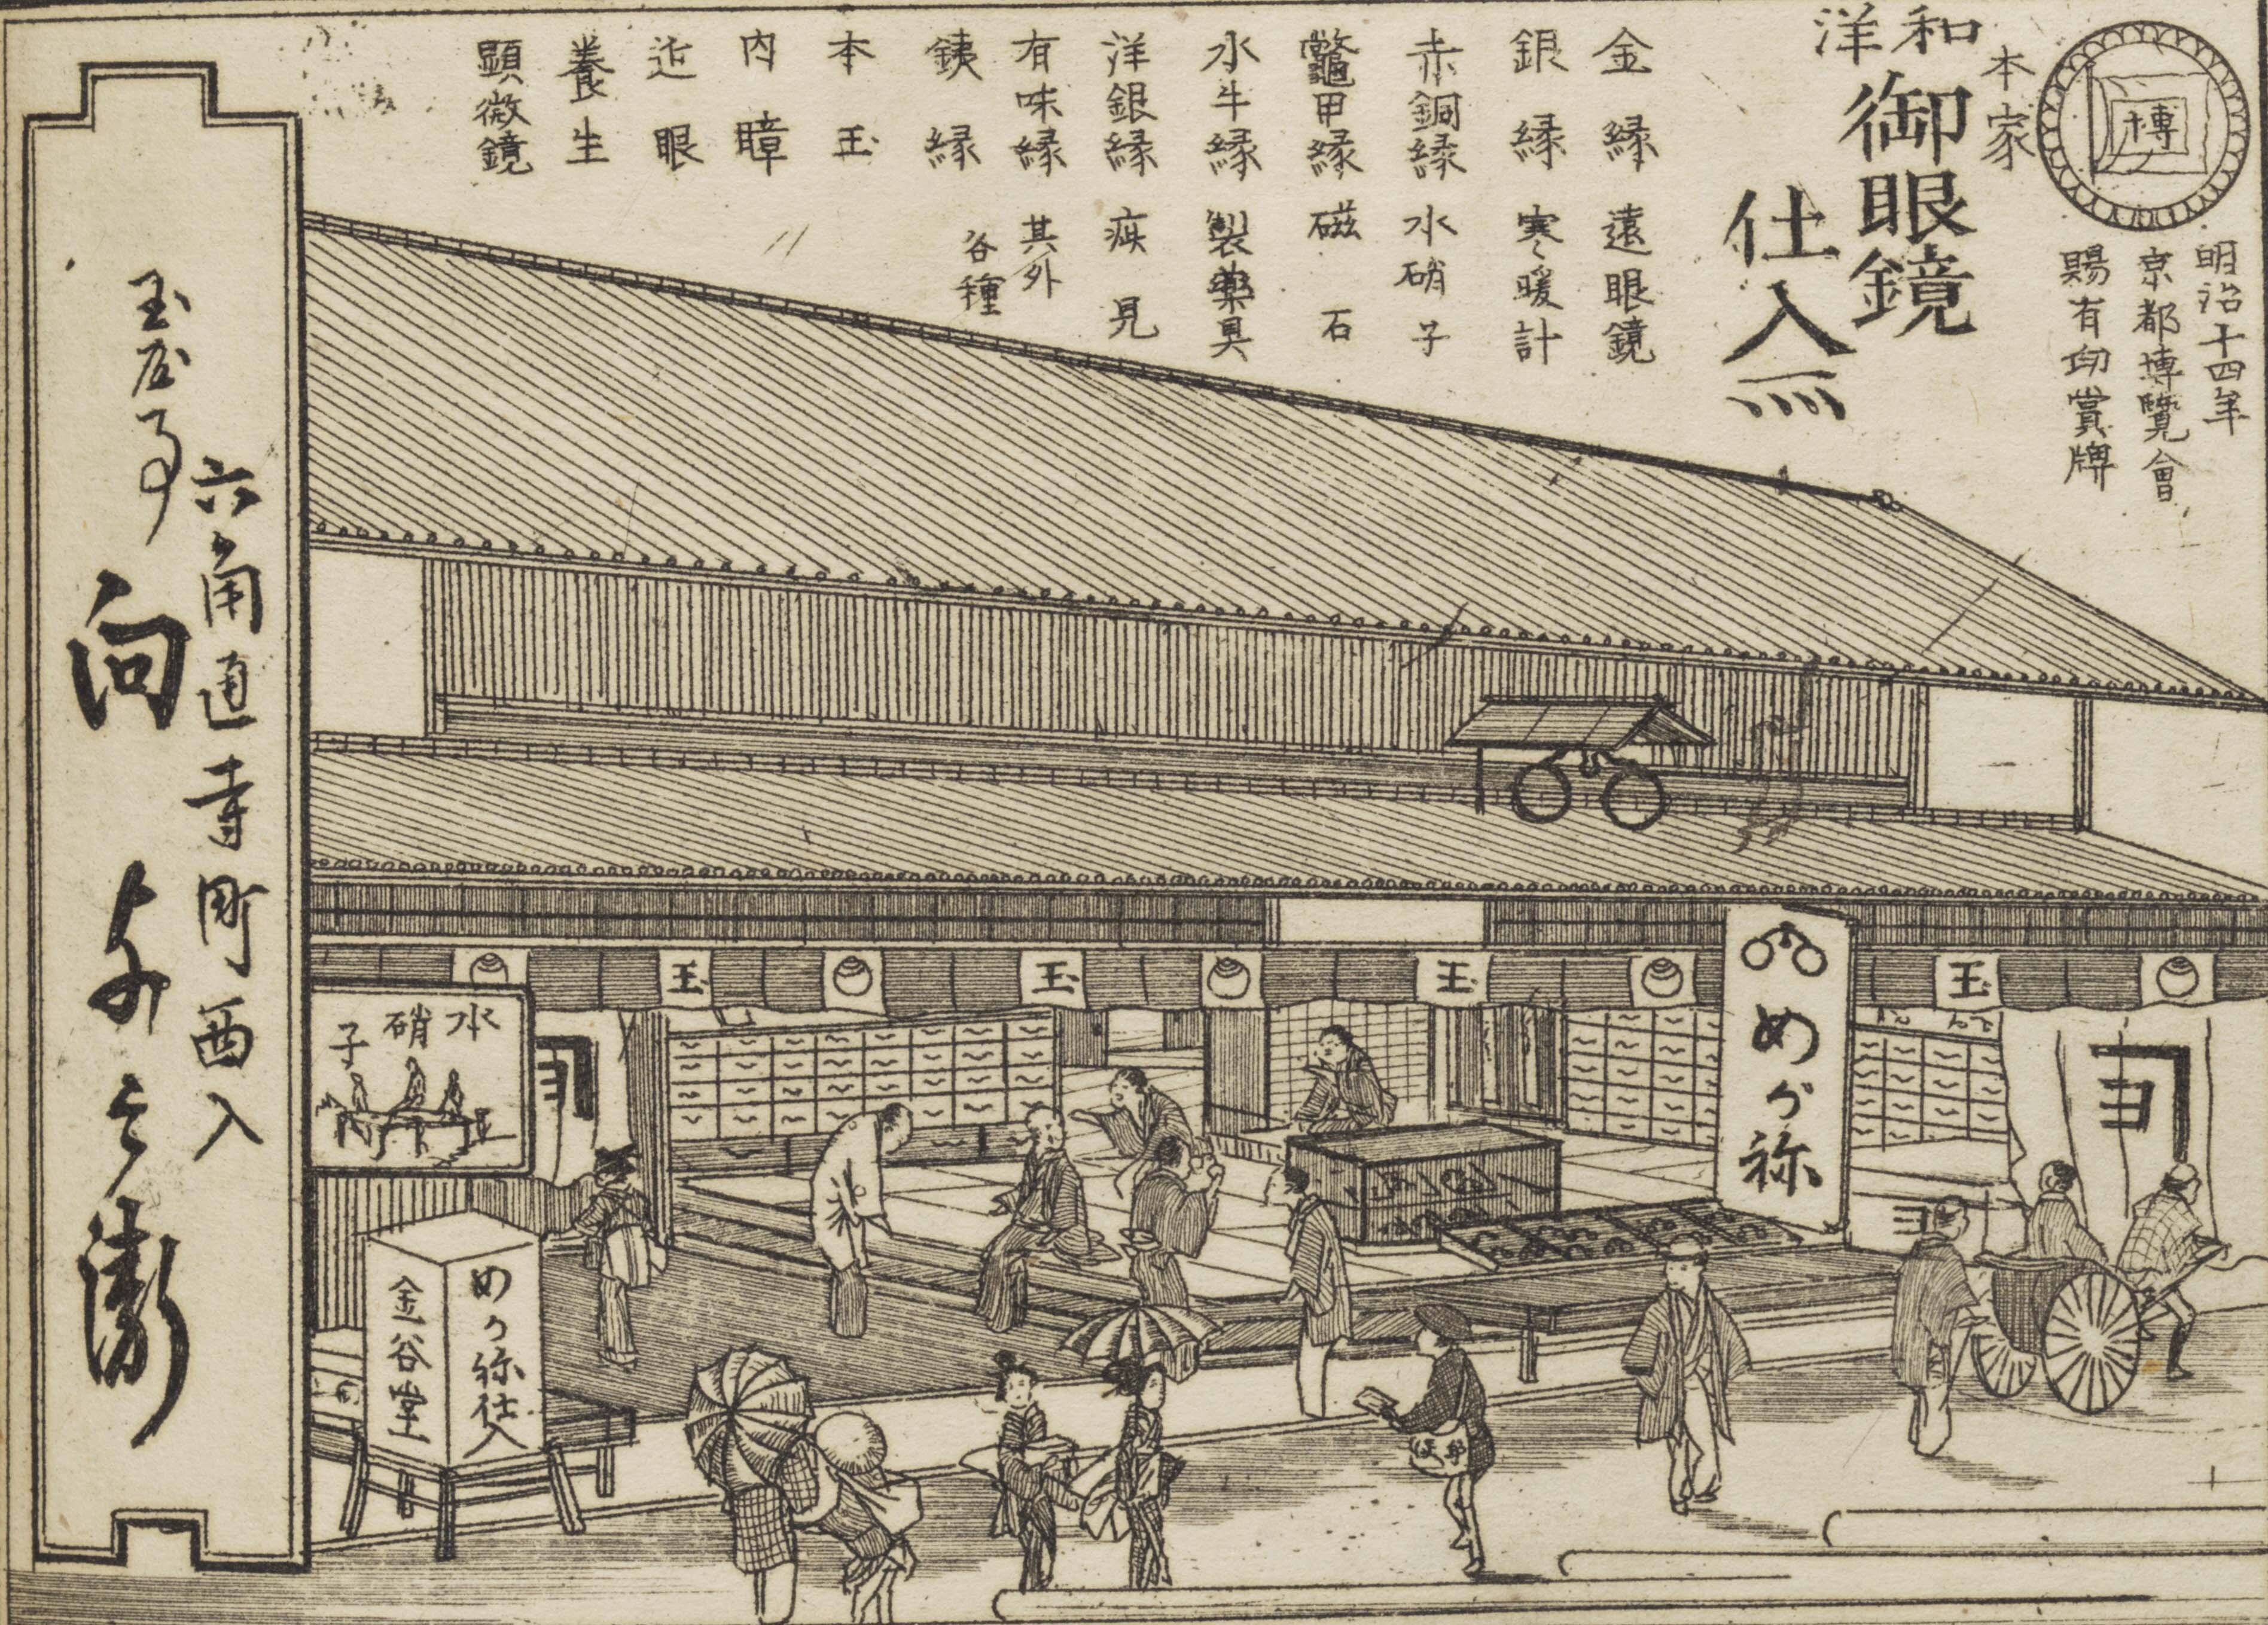 博
明治十四年
京都博覧會
賜有功賞牌
本家
和洋
御眼鏡
仕入所
金縁 遠眼鏡
銀縁 寒暖計
赤銅縁 水硝子
鼈甲縁 磁石
水牛縁 製藥具
洋銀縁 疾見
有味縁 其外
銕縁 各種
本玉
内瞕
近眼
養生
顕微鏡
六角通寺町西入
玉屋事
向
玉
玉
玉
玉
めがね
水硝子
めがね仕入
金谷堂
郵便